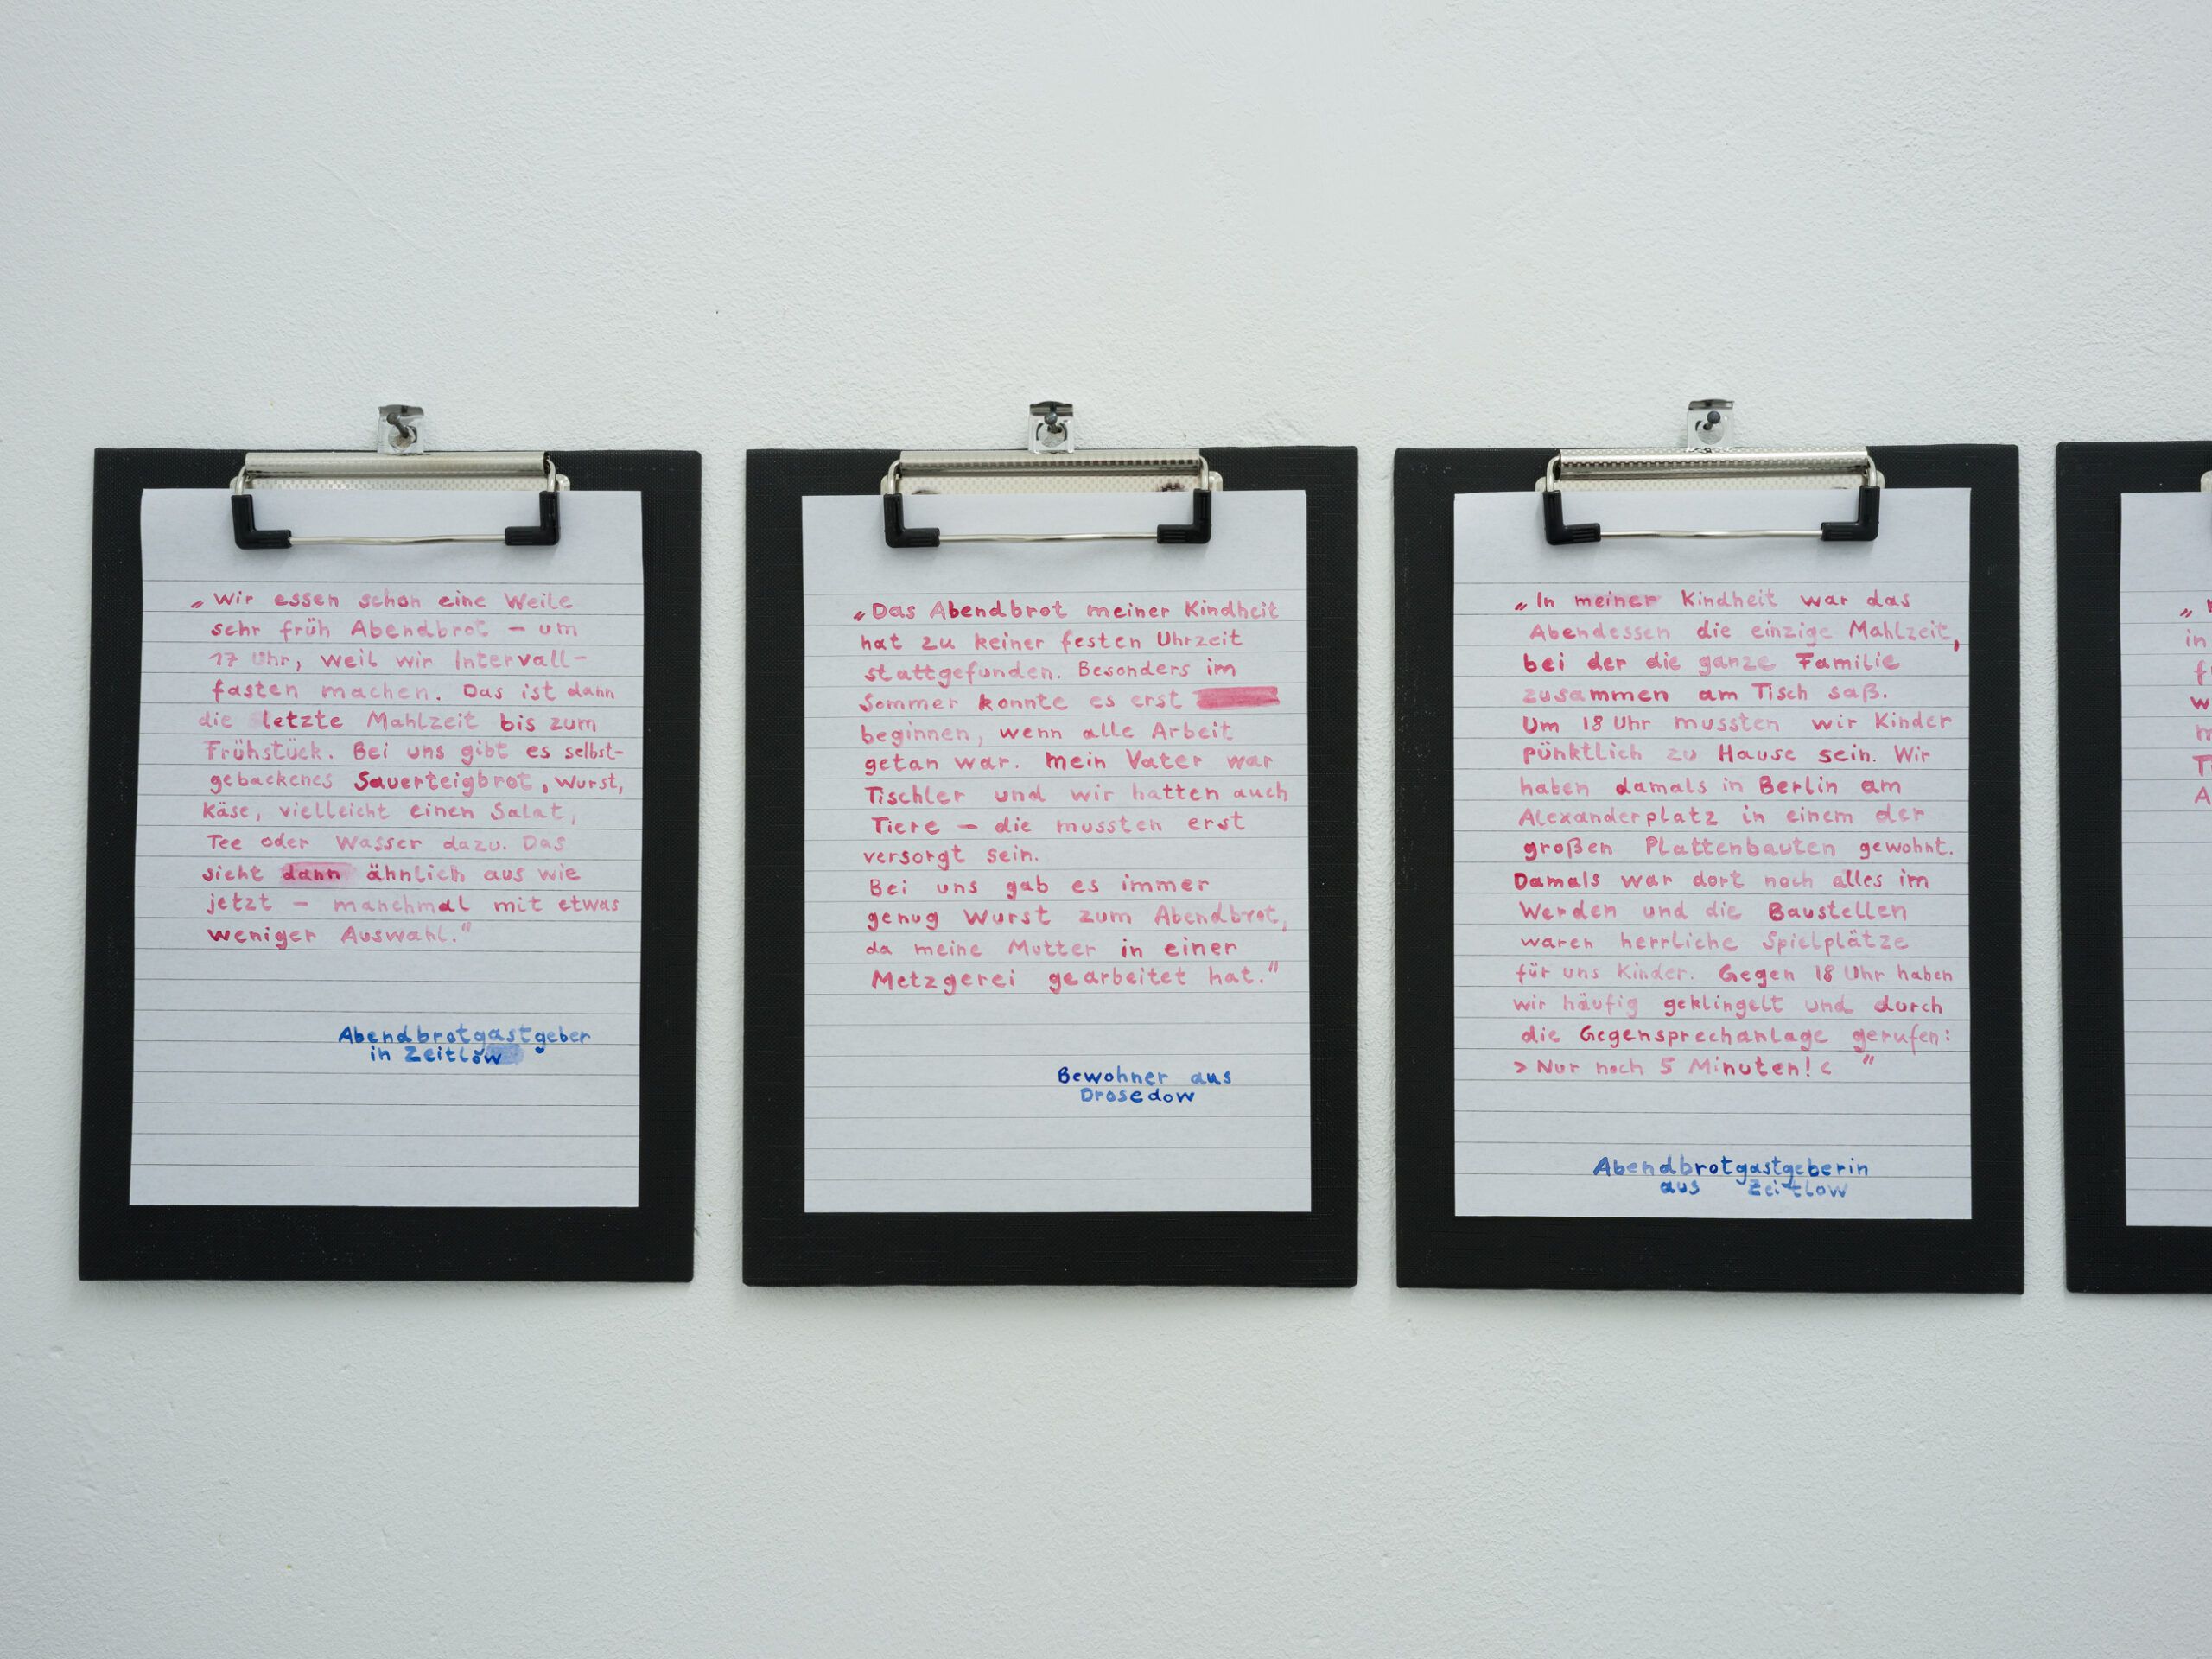 „Wir essen schon eine Weile
sehr früh Abendbrot – um
17 Uhr, weil wir Intervall-
fasten machen. Das ist dann
die letzte Mahlzeit bis zum
Frühstück. Bei uns gibt es selbst-
gebackenes Sauerteigbrot, Wurst,
Käse, vielleicht einen Salat,
Tee oder Wasser dazu. Das
sieht dann ähnlich aus wie
jetzt – manchmal mit etwas
weniger Auswahl.“
Abendbrotgastgeber
in Zeitlow
„Das Abendbrot meiner Kindheit
hat zu keiner festen Uhrzeit
stattgefunden. Besonders im
Sommer konnte es erst
beginnen, wenn alle Arbeit
getan war. Mein Vater war
Tischler und wir hatten auch
Tiere – die mussten erst
versorgt sein.
Bei uns gab es immer
genug Wurst zum Abendbrot,
da meine Mutter in einer
Metzgerei gearbeitet hat.“
Bewohner aus
Drosedow
„In meiner Kindheit war das
Abendessen die einzige Mahlzeit,
bei der die ganze Familie
zusammen am Tisch saß.
Um 18 Uhr mussten wir Kinder
pünktlich zu Hause sein. Wir
haben damals in Berlin am
Alexanderplatz in einem der
großen Plattenbauten gewohnt.
Damals war dort noch alles im
Werden und die Baustellen
waren herrliche Spielplätze
für uns Kinder. Gegen 18 Uhr haben
wir häufig geklingelt und durch
die Gegensprechanlage gerufen:
> Nur noch 5 Minuten! < “
Abendbrotgastgeberin
aus Zeitlow
in